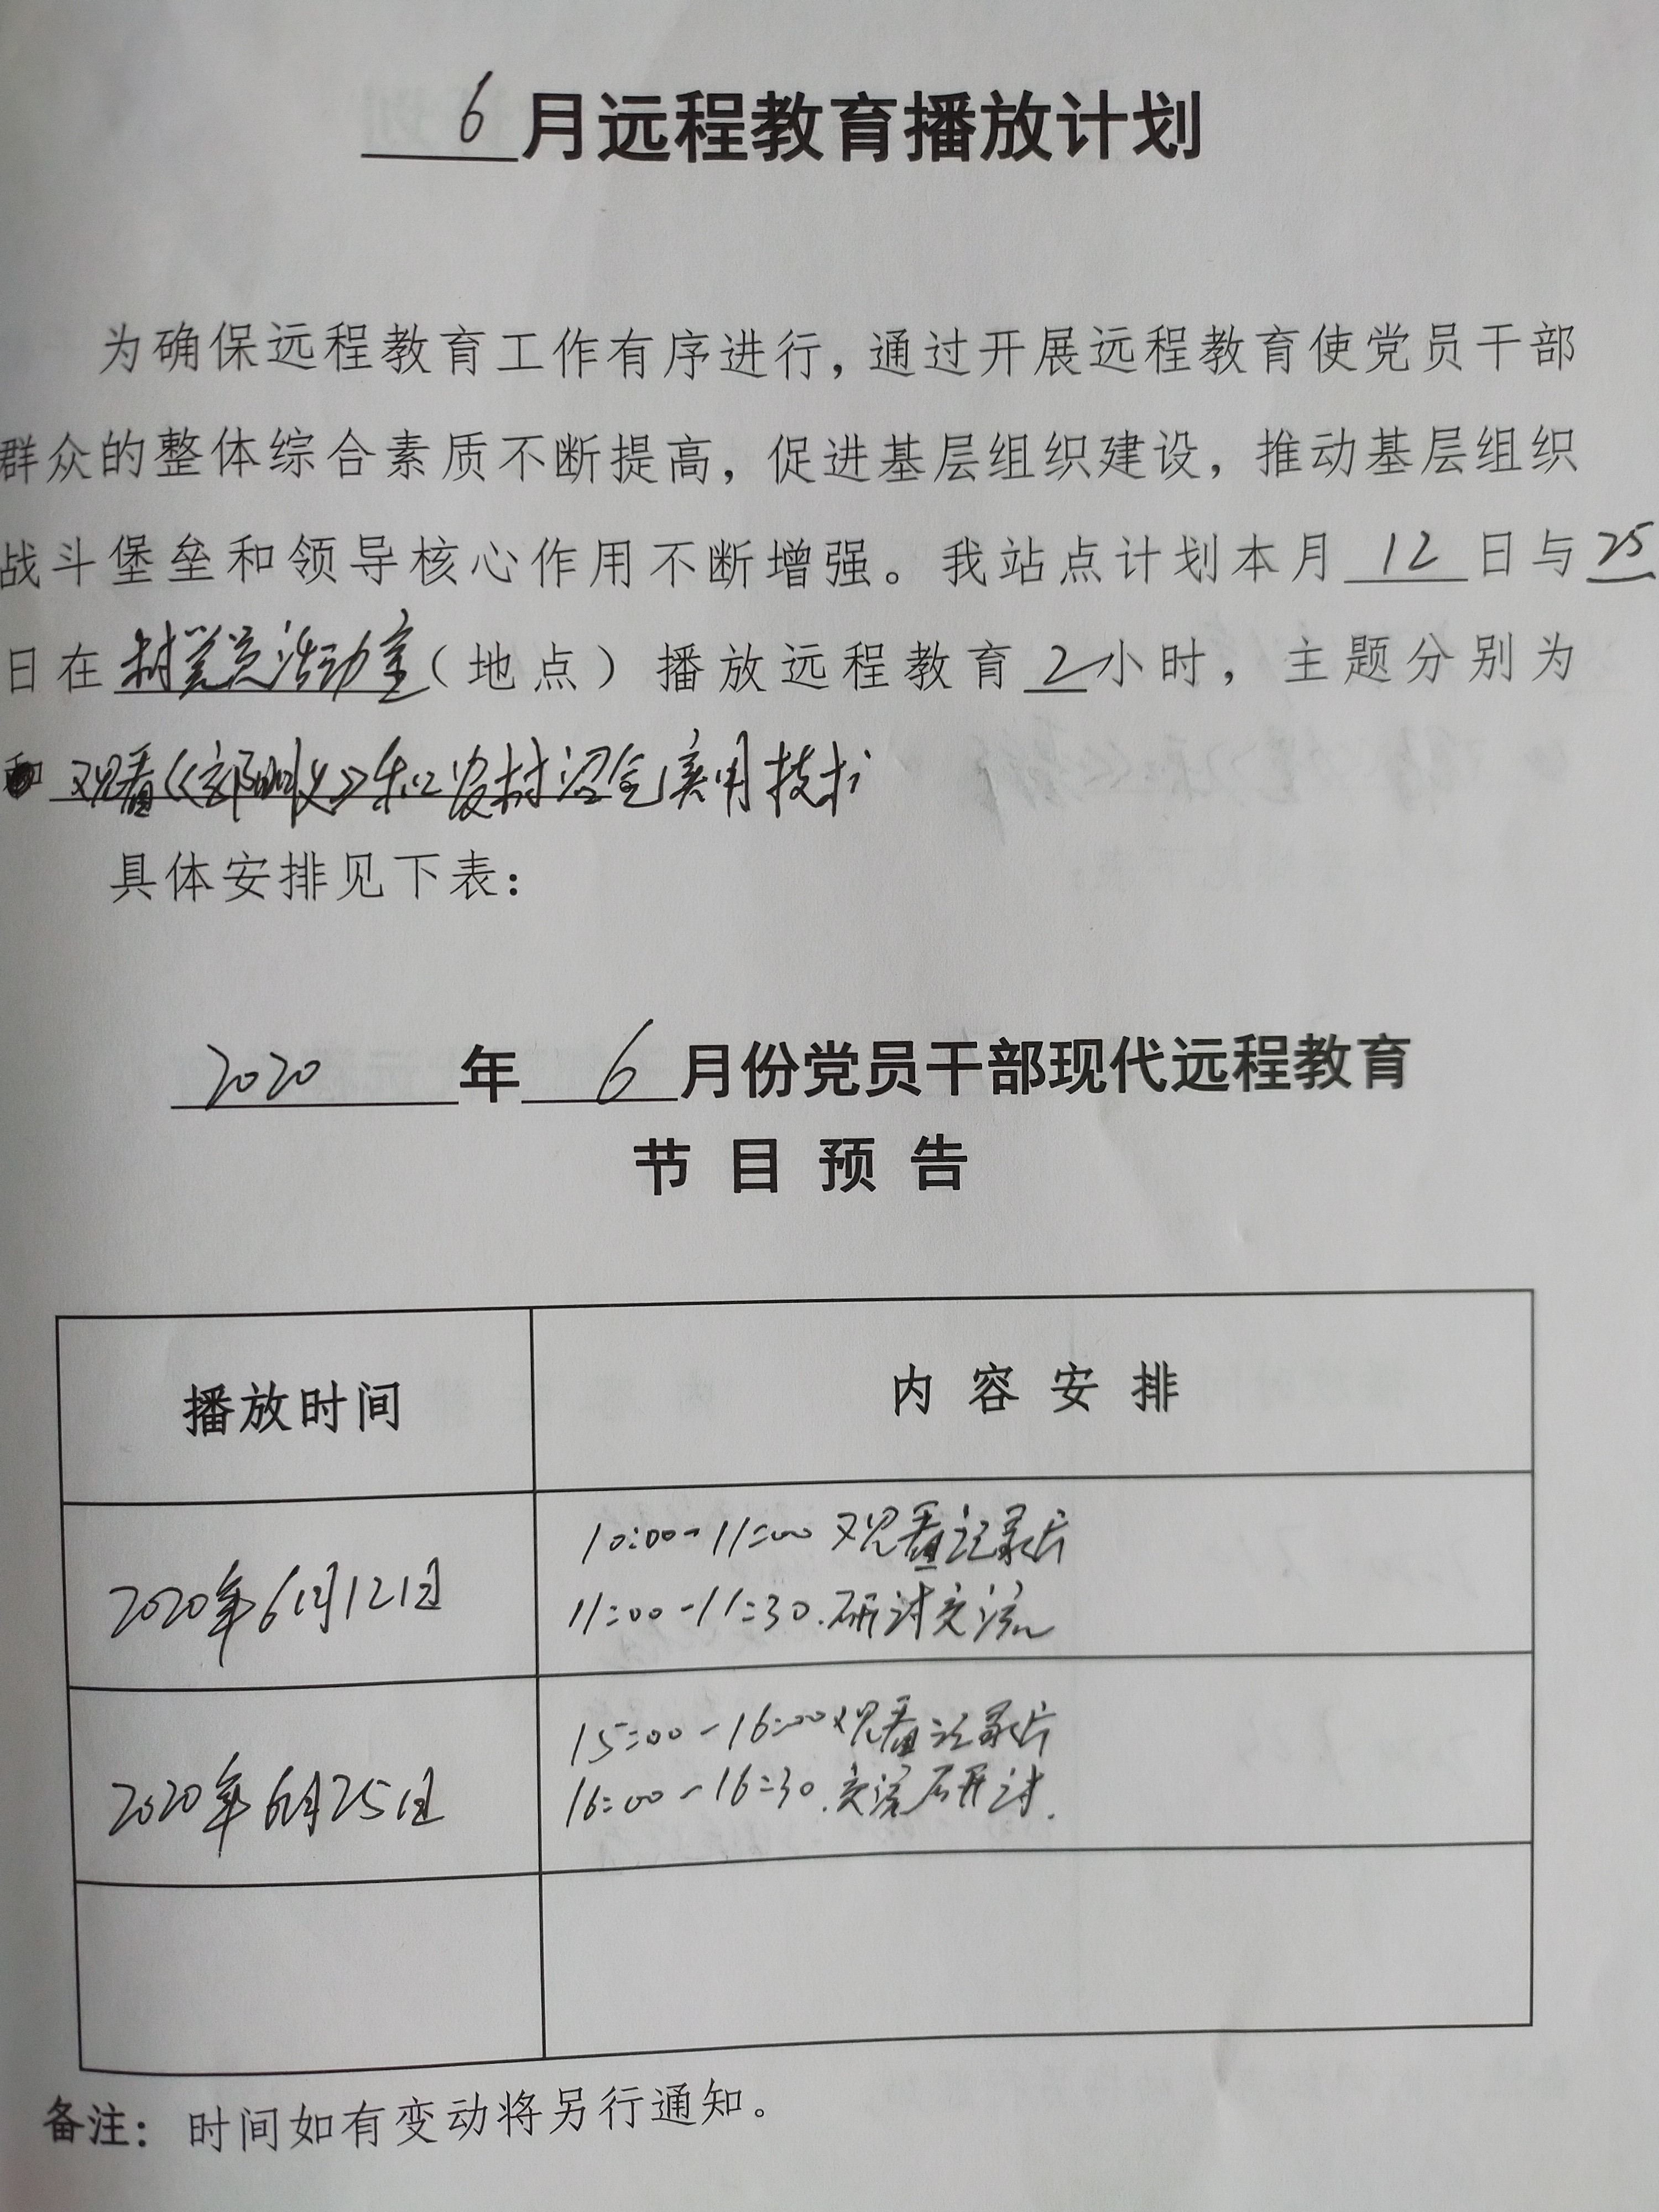 6月远程教育播放计划
为确保远程教育工作有序进行，通过开展远程教育使党员干部
群众的整体综合素质不断提高，促进基层组织建设，推动基层组织
战斗堡垒和领导核心作用不断增强。我站点计划本月12日与25
日在村党员活动室（地点）播放远程教育2小时，主题分别为
观看《郭明义》和农村沼气实用技术
具体安排见下表：
2020年6月份党员干部现代远程教育
节目预告
播放时间 内容安排
2020年6月12日 10:00-11:00 观看记录片
11:00-11:30.研讨交流
2020年6月25日 15:00-16:00观看记录片
16:00-16:30.交流研讨.
备注：时间如有变动将另行通知。